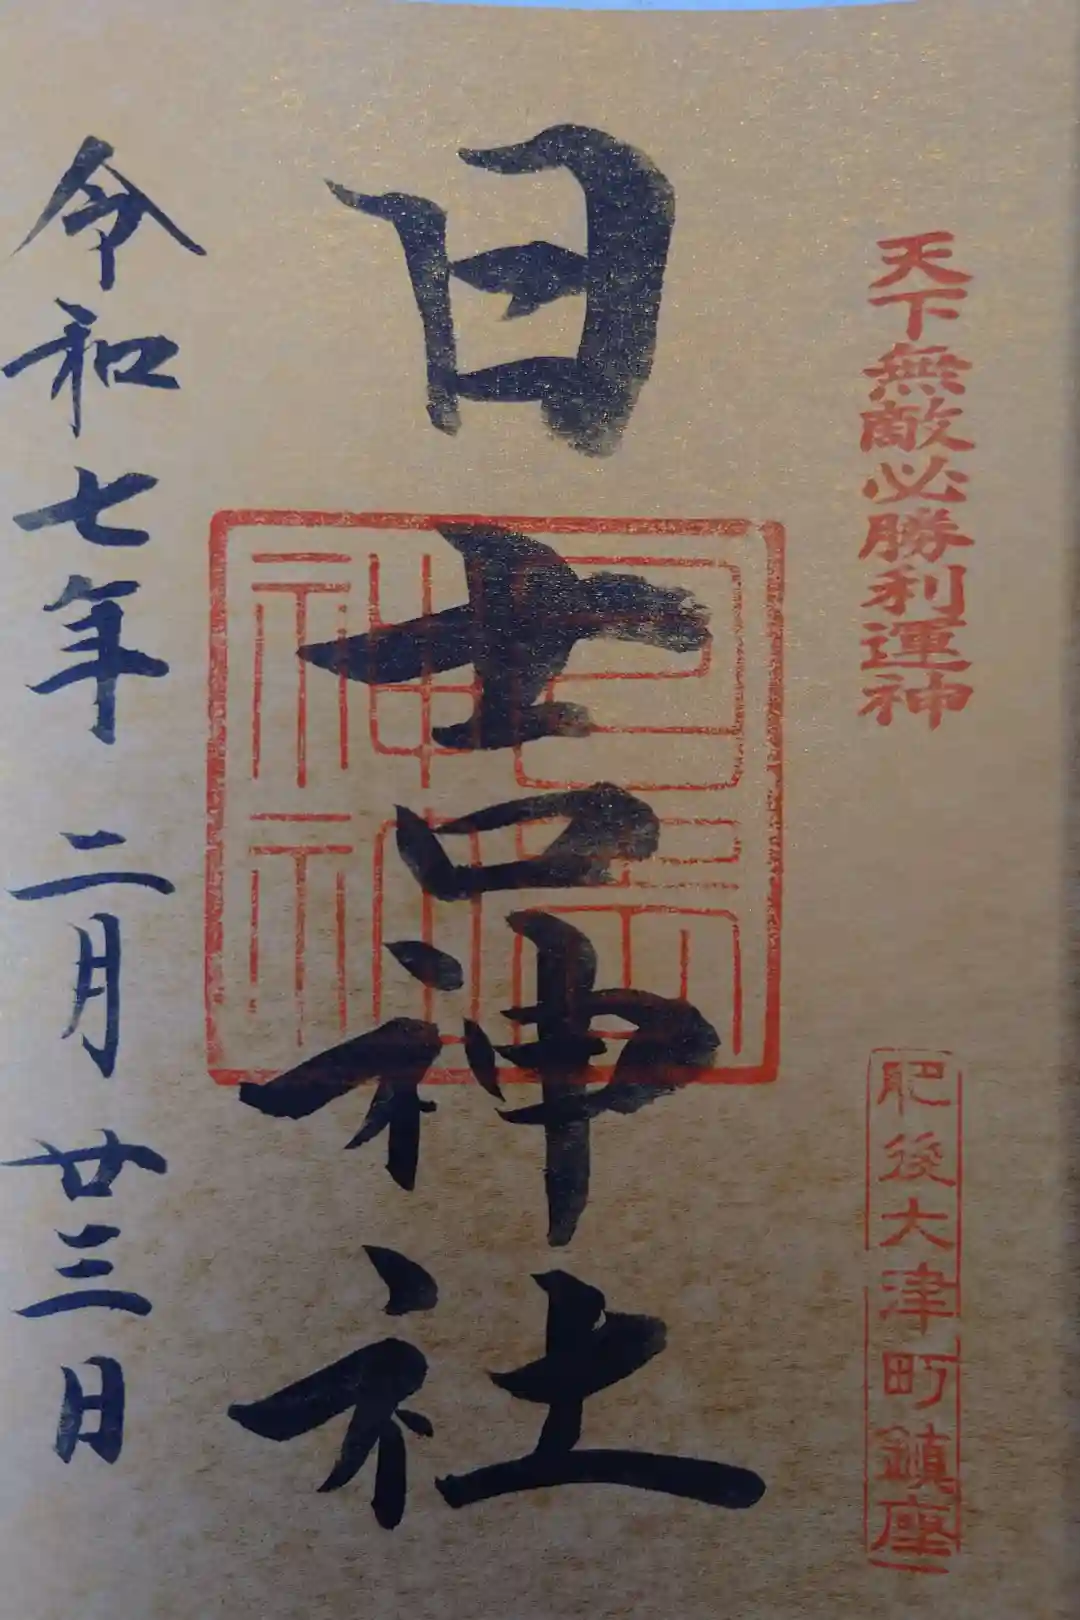 天下無敵必勝利運神
肥後大津町鎮座
日吉神社
日吉神社
令和七年 二月 廿三日